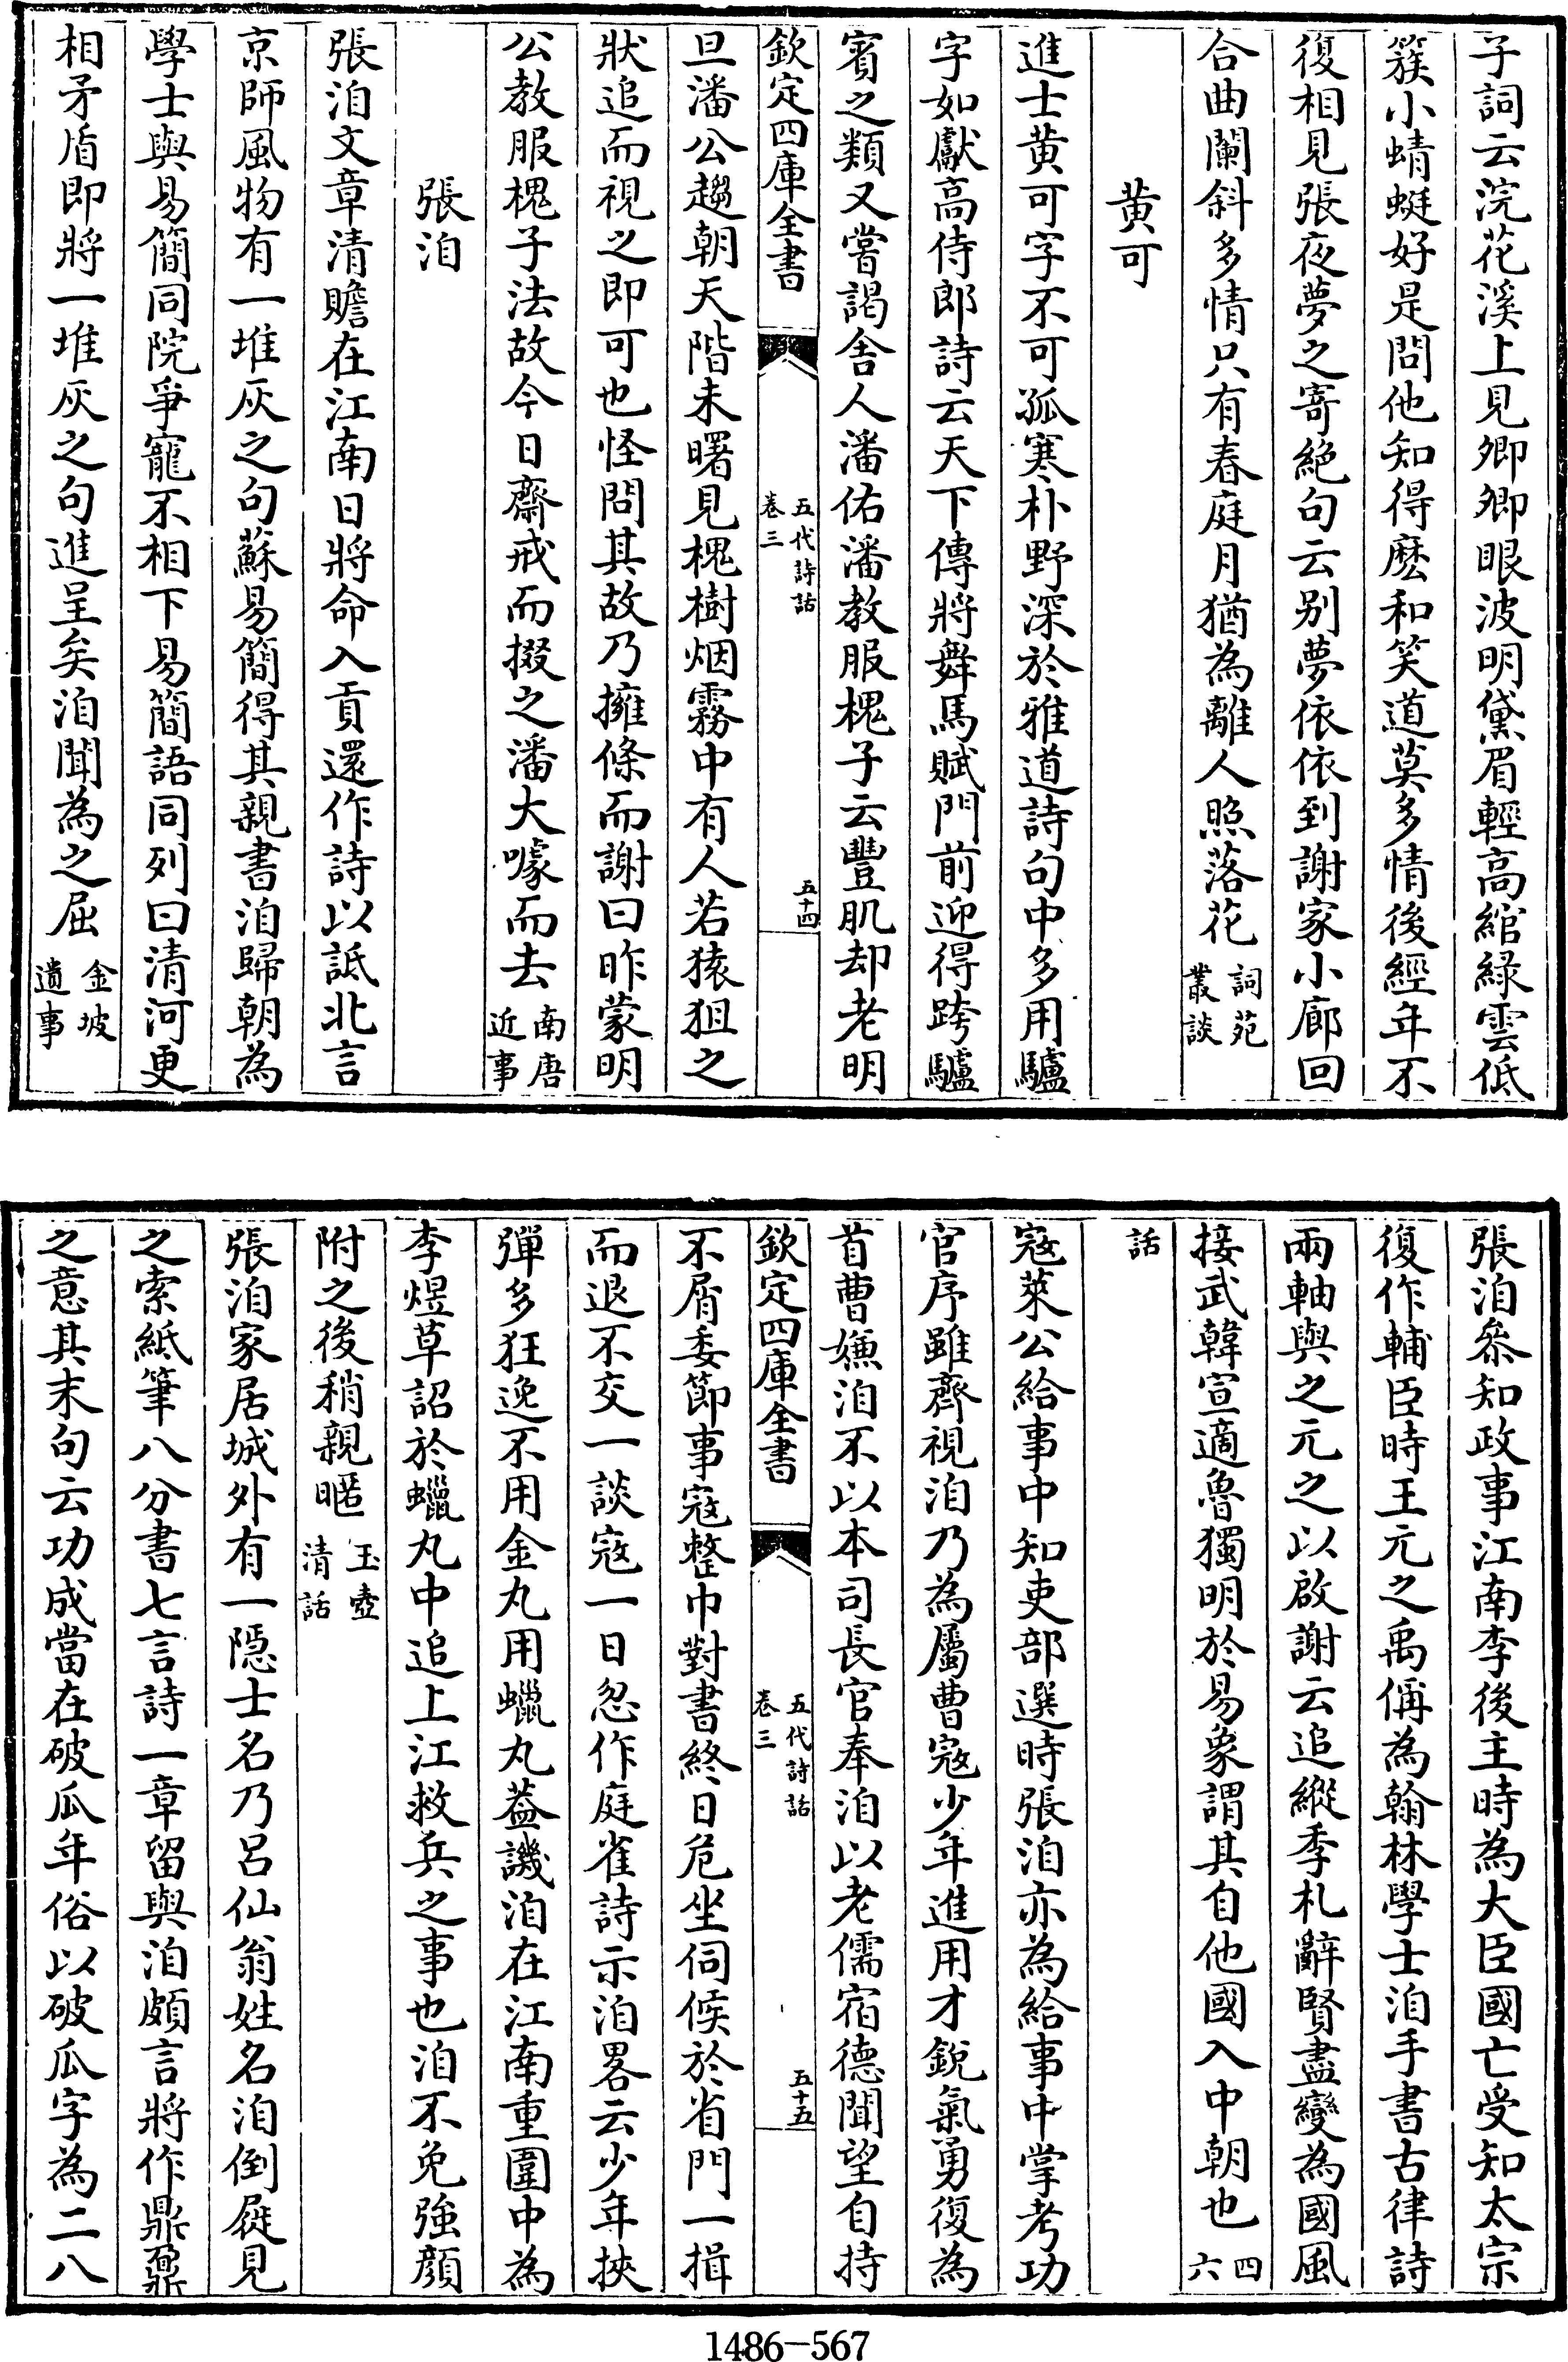 子詞云浣花溪上見卿卿眼波明黛眉輕高綰綠雲低
簇小蜻蜓好是問他知得麽和笑道莫多情後經年不
復相見張夜夢之寄絶句云别夢依依到謝家小廊回
合曲闌斜多情只有春庭月猶為離人照落花詞苑叢談
黄可
進士黄可字不可孤寒朴野深於雅道詩句中多用驢
字如獻高侍郎詩云天下傳將舞馬賦門前迎得跨驢
賓之類又嘗謁舍人潘佑潘教服槐子云豐肌却老明
欽定四庫全書 五代詩話 卷三 五十四
旦潘公趨朝天階未曙見槐樹烟霧中有人若猿狙之
狀追而視之即可也怪問其故乃擁條而謝曰昨蒙明
公教服槐子法故今日齋戒而掇之潘大噱而去南唐近事
張洎
張洎文章清贍在江南日將命入貢還作詩以詆北言
京師風物有一堆灰之句蘇易簡得其親書洎歸朝為
學士與易簡同院爭寵不相下易簡語同列曰清河更
相矛盾即將一堆灰之句進呈矣洎聞為之屈金坡遺事
張洎叅知政事江南李後主時為大臣國亡受知太宗
復作輔臣時王元之禹偁為翰林學士洎手書古律詩
兩軸與之元之以啟謝云追縱季札辭賢盡變為國風
接武韓宣適魯獨明於易象謂其自他國入中朝也四六
話
寇萊公給事中知吏部選時張洎亦為給事中掌考功
官序雖齊視洎乃為屬曹寇少年進用才銳氣勇復為
首曹嫌洎不以本司長官奉洎以老儒宿德聞望自持
欽定四庫全書 五代詩話 卷三 五十五
不屑委節事寇整巾對書終日危坐伺候於省門一揖
而退不交一談寇一日忽作庭雀詩示洎畧云少年挾
彈多狂逸不用金丸用蠟丸葢譏洎在江南重圍中為
李煜草詔於蠟丸中追上江救兵之事也洎不免強顔
附之後稍親暱玉壺清話
張洎家居城外有一隠士名乃呂仙翁姓名洎倒屣見
之索紙筆八分書七言詩一章留與洎頗言將作鼎鼐
之意其末句云功成當在破瓜年俗以破瓜字為二八
1486-567